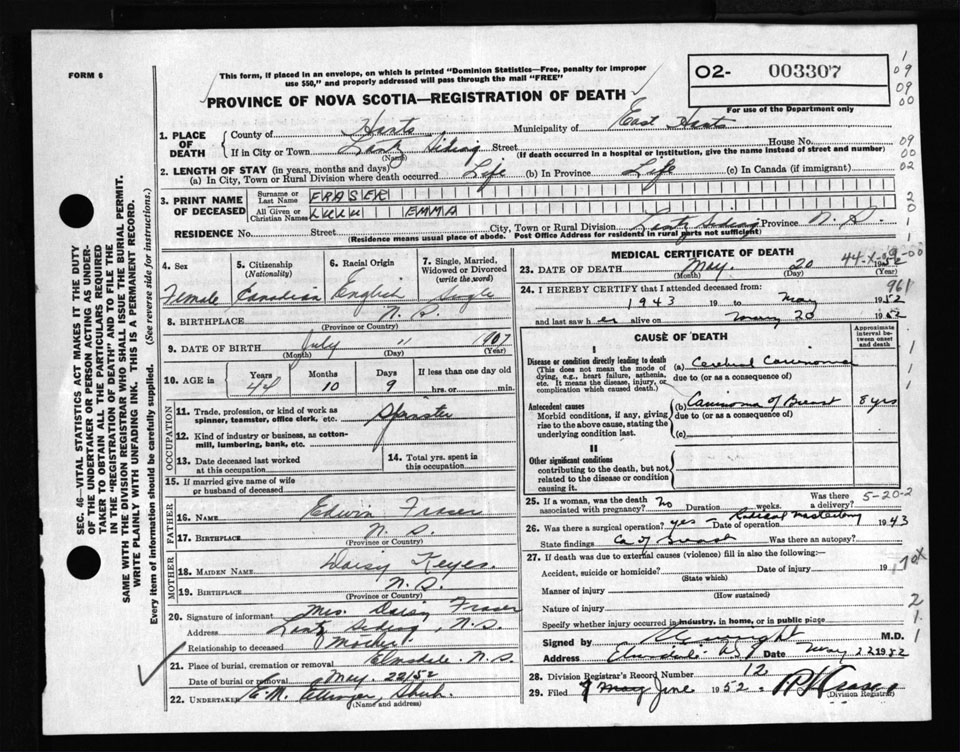 FORM 6
This form, if placed in an envelope, on which is printed "Dominion Statistics—Free, penalty for improper
use $50," and properly addressed will pass through the mail "FREE"
02- 003307
For use of the Department only
PROVINCE OF NOVA SCOTIA—REGISTRATION OF DEATH
1. PLACE OF DEATH
County of Hants Municipality of East Hants
If in City or Town Lantz Siding Street House No.
(Name) (If death occurred in a hospital or institution, give name instead of street and number)
2. LENGTH OF STAY (in years, months and days)
(a) In City, Town or Rural Division where death occurred Life (b) In Province Life (c) In Canada (if immigrant)
3. PRINT NAME OF DECEASED
Surname or Last Name FRASER
All Given or Christian Names LULU EMMA
RESIDENCE No. Street City, Town or Rural Division Lantz Siding Province N.S.
(Residence means usual place of abode. Post Office Address for residents in rural parts not sufficient)
4. Sex Female
5. Citizenship (Nationality) Canadian
6. Racial Origin English
7. Single, Married, Widowed or Divorced (write the word) Single
8. BIRTHPLACE N.S.
(Province or Country)
9. DATE OF BIRTH July 11 1907
(Month) (Day) (Year)
10. AGE in Years 44 Months 10 Days 9 If less than one day old
hrs. or min.
OCCUPATION
11. Trade, profession, or kind of work as spinner, teamster, office clerk, etc. Spinster
12. Kind of industry or business, as cotton-mill, lumbering, bank, etc.
13. Date deceased last worked at this occupation
14. Total yrs. spent in this occupation
15. If married give name of wife or husband of deceased
FATHER
16. NAME Edwin Fraser
17. BIRTHPLACE N.S.
(Province or Country)
MOTHER
18. MAIDEN NAME Daisy Keyes
19. BIRTHPLACE N.S.
(Province or Country)
20. Signature of informant Mrs. Daisy Fraser
Address Lantz Siding, N.S.
Relationship to deceased Mother
21. Place of burial, cremation or removal Elmsdale N.S.
Date of burial or removal May 22/52
22. UNDERTAKER E.M. Ettinger, Shub.
(Name and address)
MEDICAL CERTIFICATE OF DEATH
44-X-9-00
23. DATE OF DEATH May 20 1952
(Month) (Day) (Year)
961
24. I HEREBY CERTIFY that I attended deceased from:
1943 19 to May 1952
and last saw her alive on May 20 1952
CAUSE OF DEATH
Approximate interval between onset and death
I
Disease or condition directly leading to death
(This does not mean the mode of dying, e.g., heart failure, asthenia, etc. It means the disease, injury, or complication which caused death.)
(a) Cerebral Carcinoma
due to (or as a consequence of)
Antecedent causes
Morbid conditions, if any, giving rise to the above cause, stating the underlying condition last.
(b) Carcinoma of Breast 8 yrs
due to (or as a consequence of)
(c)
II
Other significant conditions
contributing to the death, but not related to the disease or condition causing it.
25. If a woman, was the death associated with pregnancy? No Duration weeks. Was there a delivery?
5-20-2
26. Was there a surgical operation? yes Date of operation Radical Mastectomy 1943
State findings Ca of Breast Was there an autopsy?
27. If death was due to external causes (violence) fill in also the following:—
Accident, suicide or homicide? Date of injury 19
(State which)
Manner of injury
(How sustained)
Nature of injury
Specify whether injury occurred in industry, in home, or in public place
Signed by M.D.
Address Elmsdale N.S. Date May 22 1952
28. Division Registrar's Record Number 12
29. Filed 9 June 1952
(Division Registrar)
SEC. 46—VITAL STATISTICS ACT MAKES IT THE DUTY
OF THE UNDERTAKER OR PERSON ACTING AS UNDER-
TAKER TO OBTAIN ALL THE PARTICULARS REQUIRED
IN THE "REGISTRATION OF DEATH" AND TO FILE THE
SAME WITH THE DIVISION REGISTRAR WHO SHALL ISSUE THE BURIAL PERMIT.
WRITE PLAINLY WITH UNFADING INK. THIS IS A PERMANENT RECORD.
Every item of information should be carefully supplied. (See reverse side for instructions.)